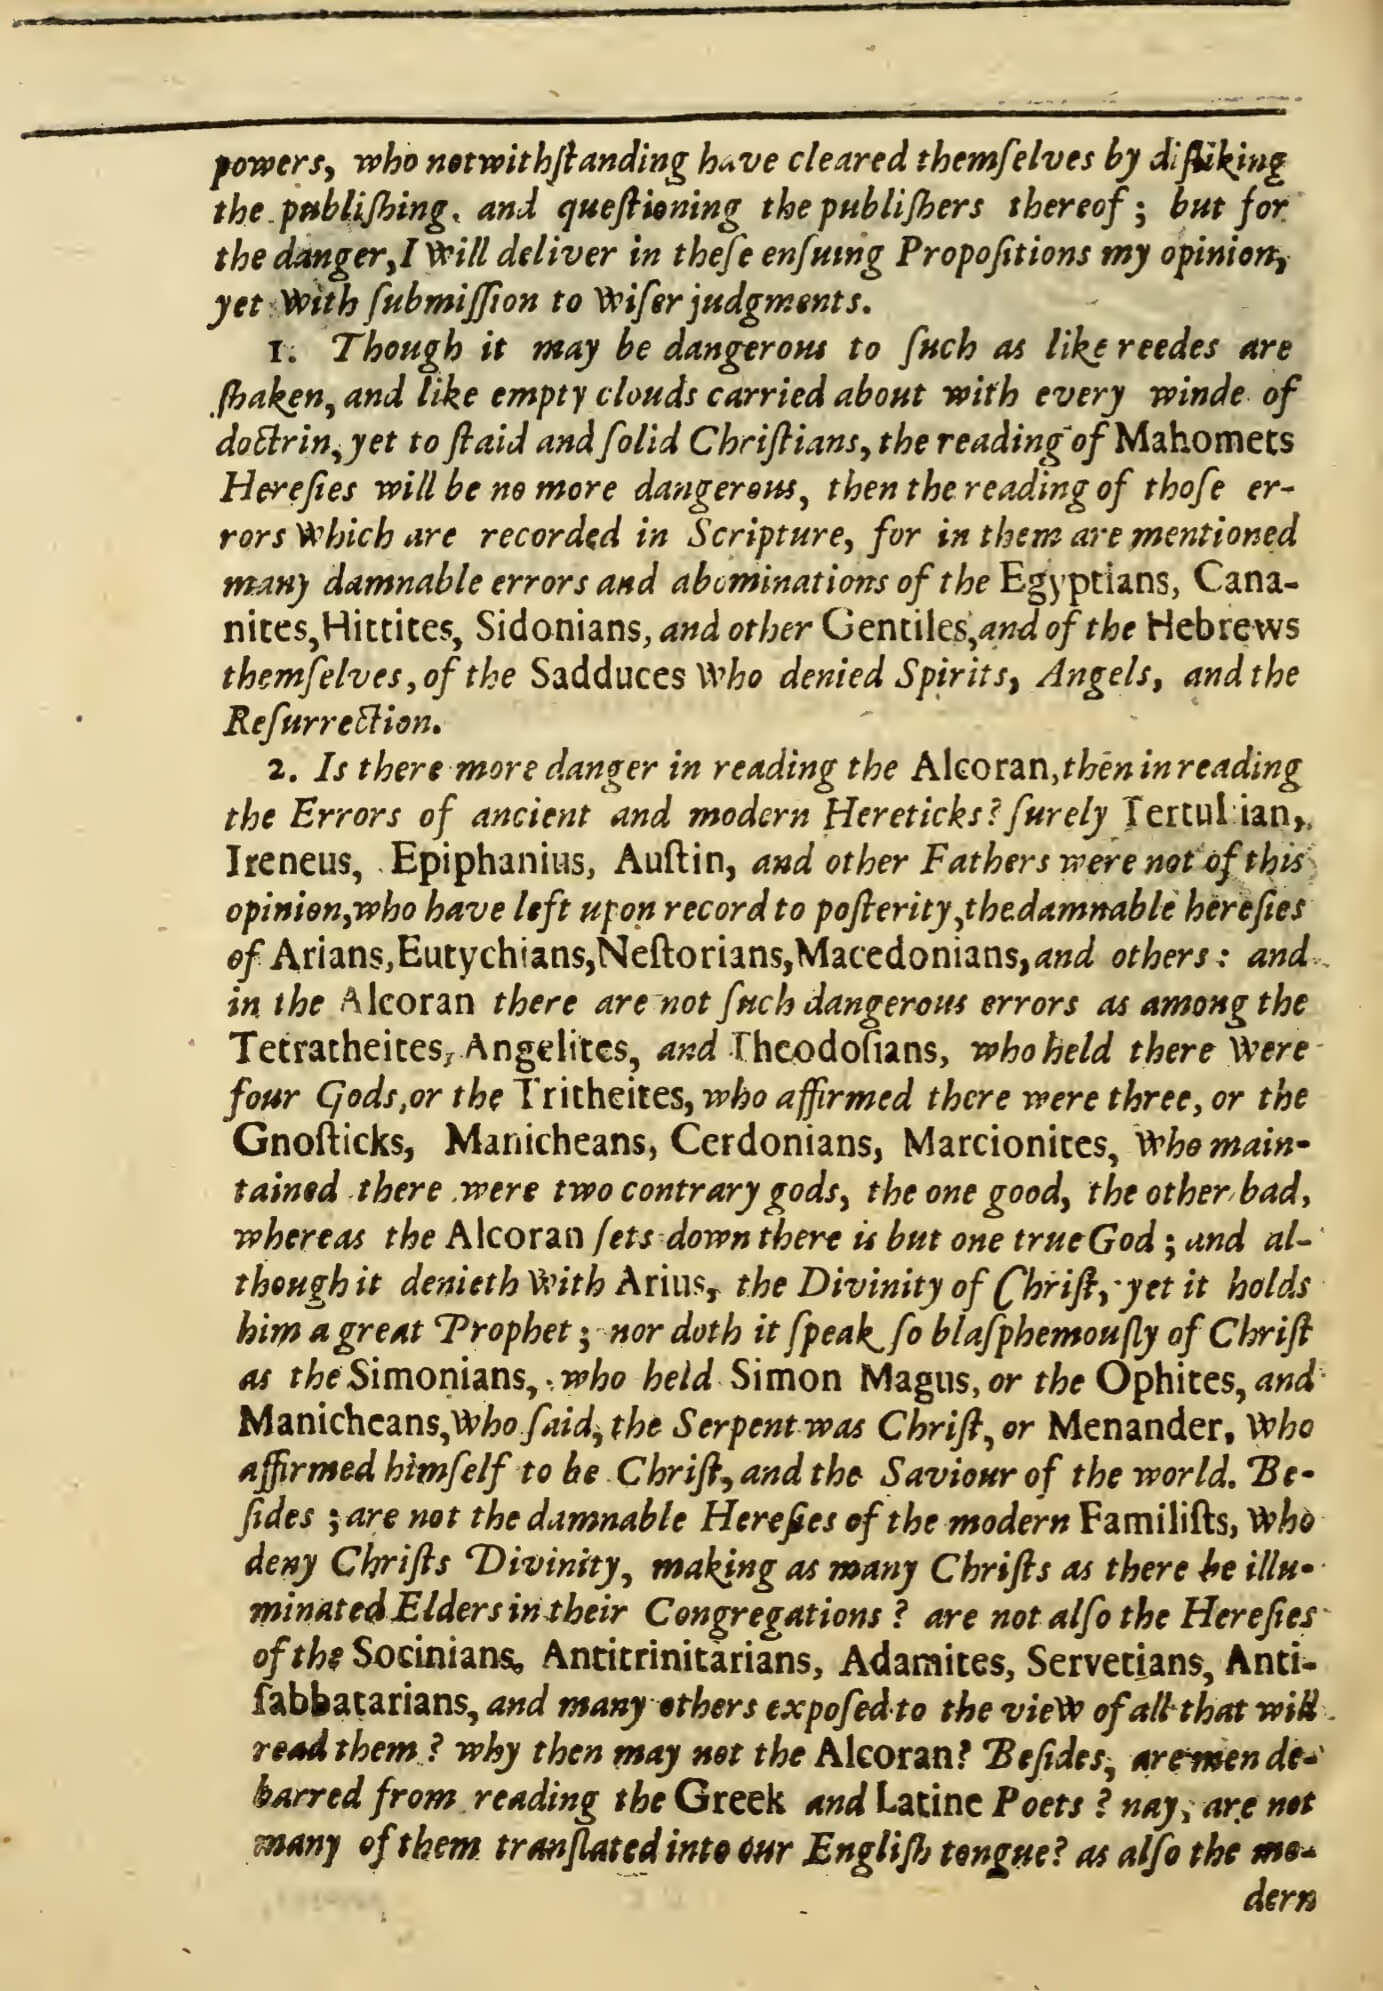 powers, who notwithſtanding have cleared themſelves by diſliking
the publiſhing, and queſtioning the publiſhers thereof; but for
the danger, I will deliver in theſe enſuing Propoſitions my opinion,
yet with ſubmiſſion to wiſer judgments.
1. Though it may be dangerous to ſuch as like reedes are
ſhaken, and like empty clouds carried about with every winde of
doctrin, yet to ſtaid and ſolid Chriſtians, the reading of Mahomets
Hereſies will be no more dangerous, then the reading of thoſe er-
rors which are recorded in Scripture, for in them are mentioned
many damnable errors and abominations of the Egyptians, Cana-
nites, Hittites, Sidonians, and other Gentiles, and of the Hebrews
themſelves, of the Sadduces who denied Spirits, Angels, and the
Reſurrection.
2. Is there more danger in reading the Alcoran, then in reading
the Errors of ancient and modern Hereticks? ſurely Tertullian,
Ireneus, Epiphanius, Auſtin, and other Fathers were not of this
opinion, who have left upon record to poſterity, the damnable hereſies
of Arians, Eutychians, Neſtorians, Macedonians, and others: and
in the Alcoran there are not ſuch dangerous errors as among the
Tetratheites, Angelites, and Theodoſians, who held there were
four Gods, or the Tritheites, who affirmed there were three, or the
Gnoſticks, Manicheans, Cerdonians, Marcionites, who main-
tained there were two contrary gods, the one good, the other bad,
whereas the Alcoran ſets down there is but one true God; and al-
though it denieth with Arius, the Divinity of Chriſt, yet it holds
him a great Prophet; nor doth it ſpeak ſo blaſphemouſly of Chriſt
as the Simonians, who held Simon Magus, or the Ophites, and
Manicheans, who ſaid, the Serpent was Chriſt, or Menander, who
affirmed himſelf to be Chriſt, and the Saviour of the world. Be-
ſides; are not the damnable Hereſies of the modern Familiſts, who
deny Chriſts Divinity, making as many Chriſts as there be illu-
minated Elders in their Congregations? are not alſo the Hereſies
of the Socinians, Antitrinitarians, Adamites, Servetians, Anti-
ſabbatarians, and many others expoſed to the view of all that will
read them? why then may not the Alcoran? Beſides, are men de-
barred from reading the Greek and Latine Poets? nay, are not
many of them tranſlated into our Engliſh tongue? as alſo the mo-
dern